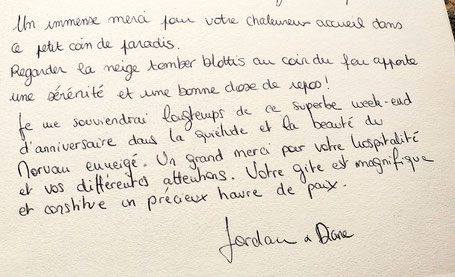 Un immense merci pour votre chaleureux accueil dans
ce petit coin de paradis.
Regarder la neige tomber blottis au coin du feu apporte
une sérénité et une bonne dose de repos !
Je me souviendrai longtemps de ce superbe week-end
d'anniversaire dans la quiétude et la beauté du
Morvan enneigé. Un grand merci pour votre hospitalité
et vos différentes attentions. Votre gîte est magnifique
et constitue un précieux havre de paix.
Jordan & Diane